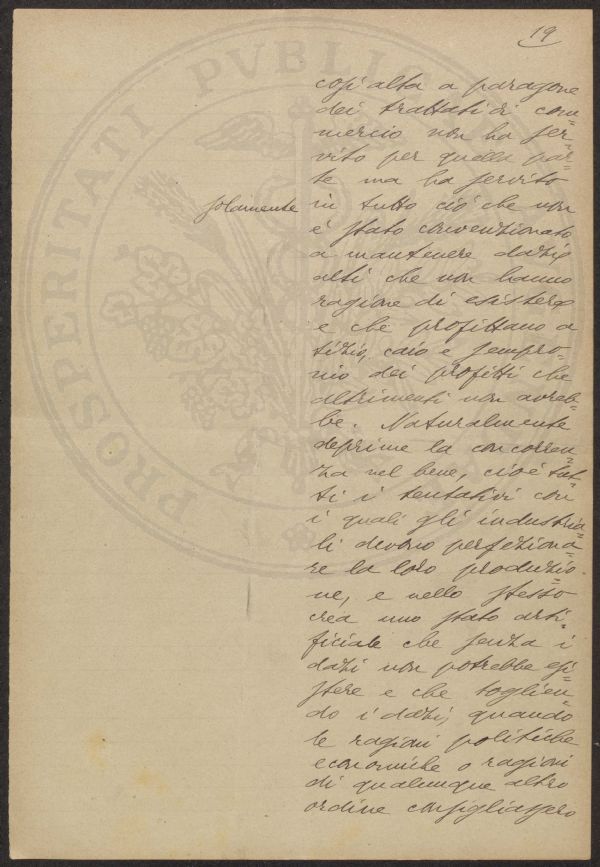 19
così alta a paragone
dei trattati di com=
mercio non ha ser=
vito per quella par=
te ma ha servito
solamente in tutto ciò che non
è stato convenzionato
a mantenere dazi
alti che non hanno
ragione di esistere
e che profittano a
tizio, caio e sempro=
nio dei profitti che
altrimenti non avreb=
be. Naturalmente
deprime la concorren=
za nel bene, cioè tut=
ti i tentativi con
i quali gli industria=
li devono perfeziona=
re la loro produzio=
ne, e nello stesso
crea uno stato arti=
ficiale che senza i
dazi non potrebbe esi=
stere e che toglien=
do i dazi, quando
le ragioni politiche
economiche o ragioni
di qualunque altro
ordine consigliassero
PROSPERITATI PVBLIC